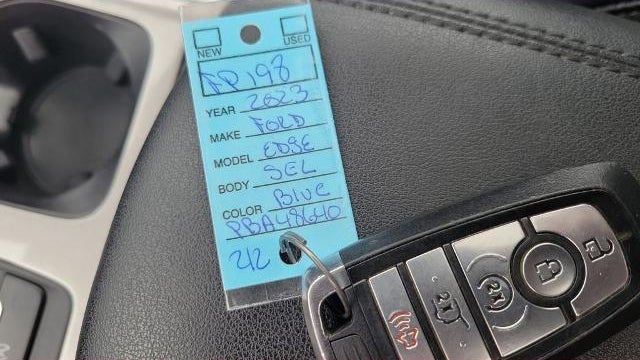 NEW USED
FP198
YEAR 2023
MAKE FORD
MODEL EDGE
BODY SEL
COLOR Blue
PBA48640
212
2x
2x